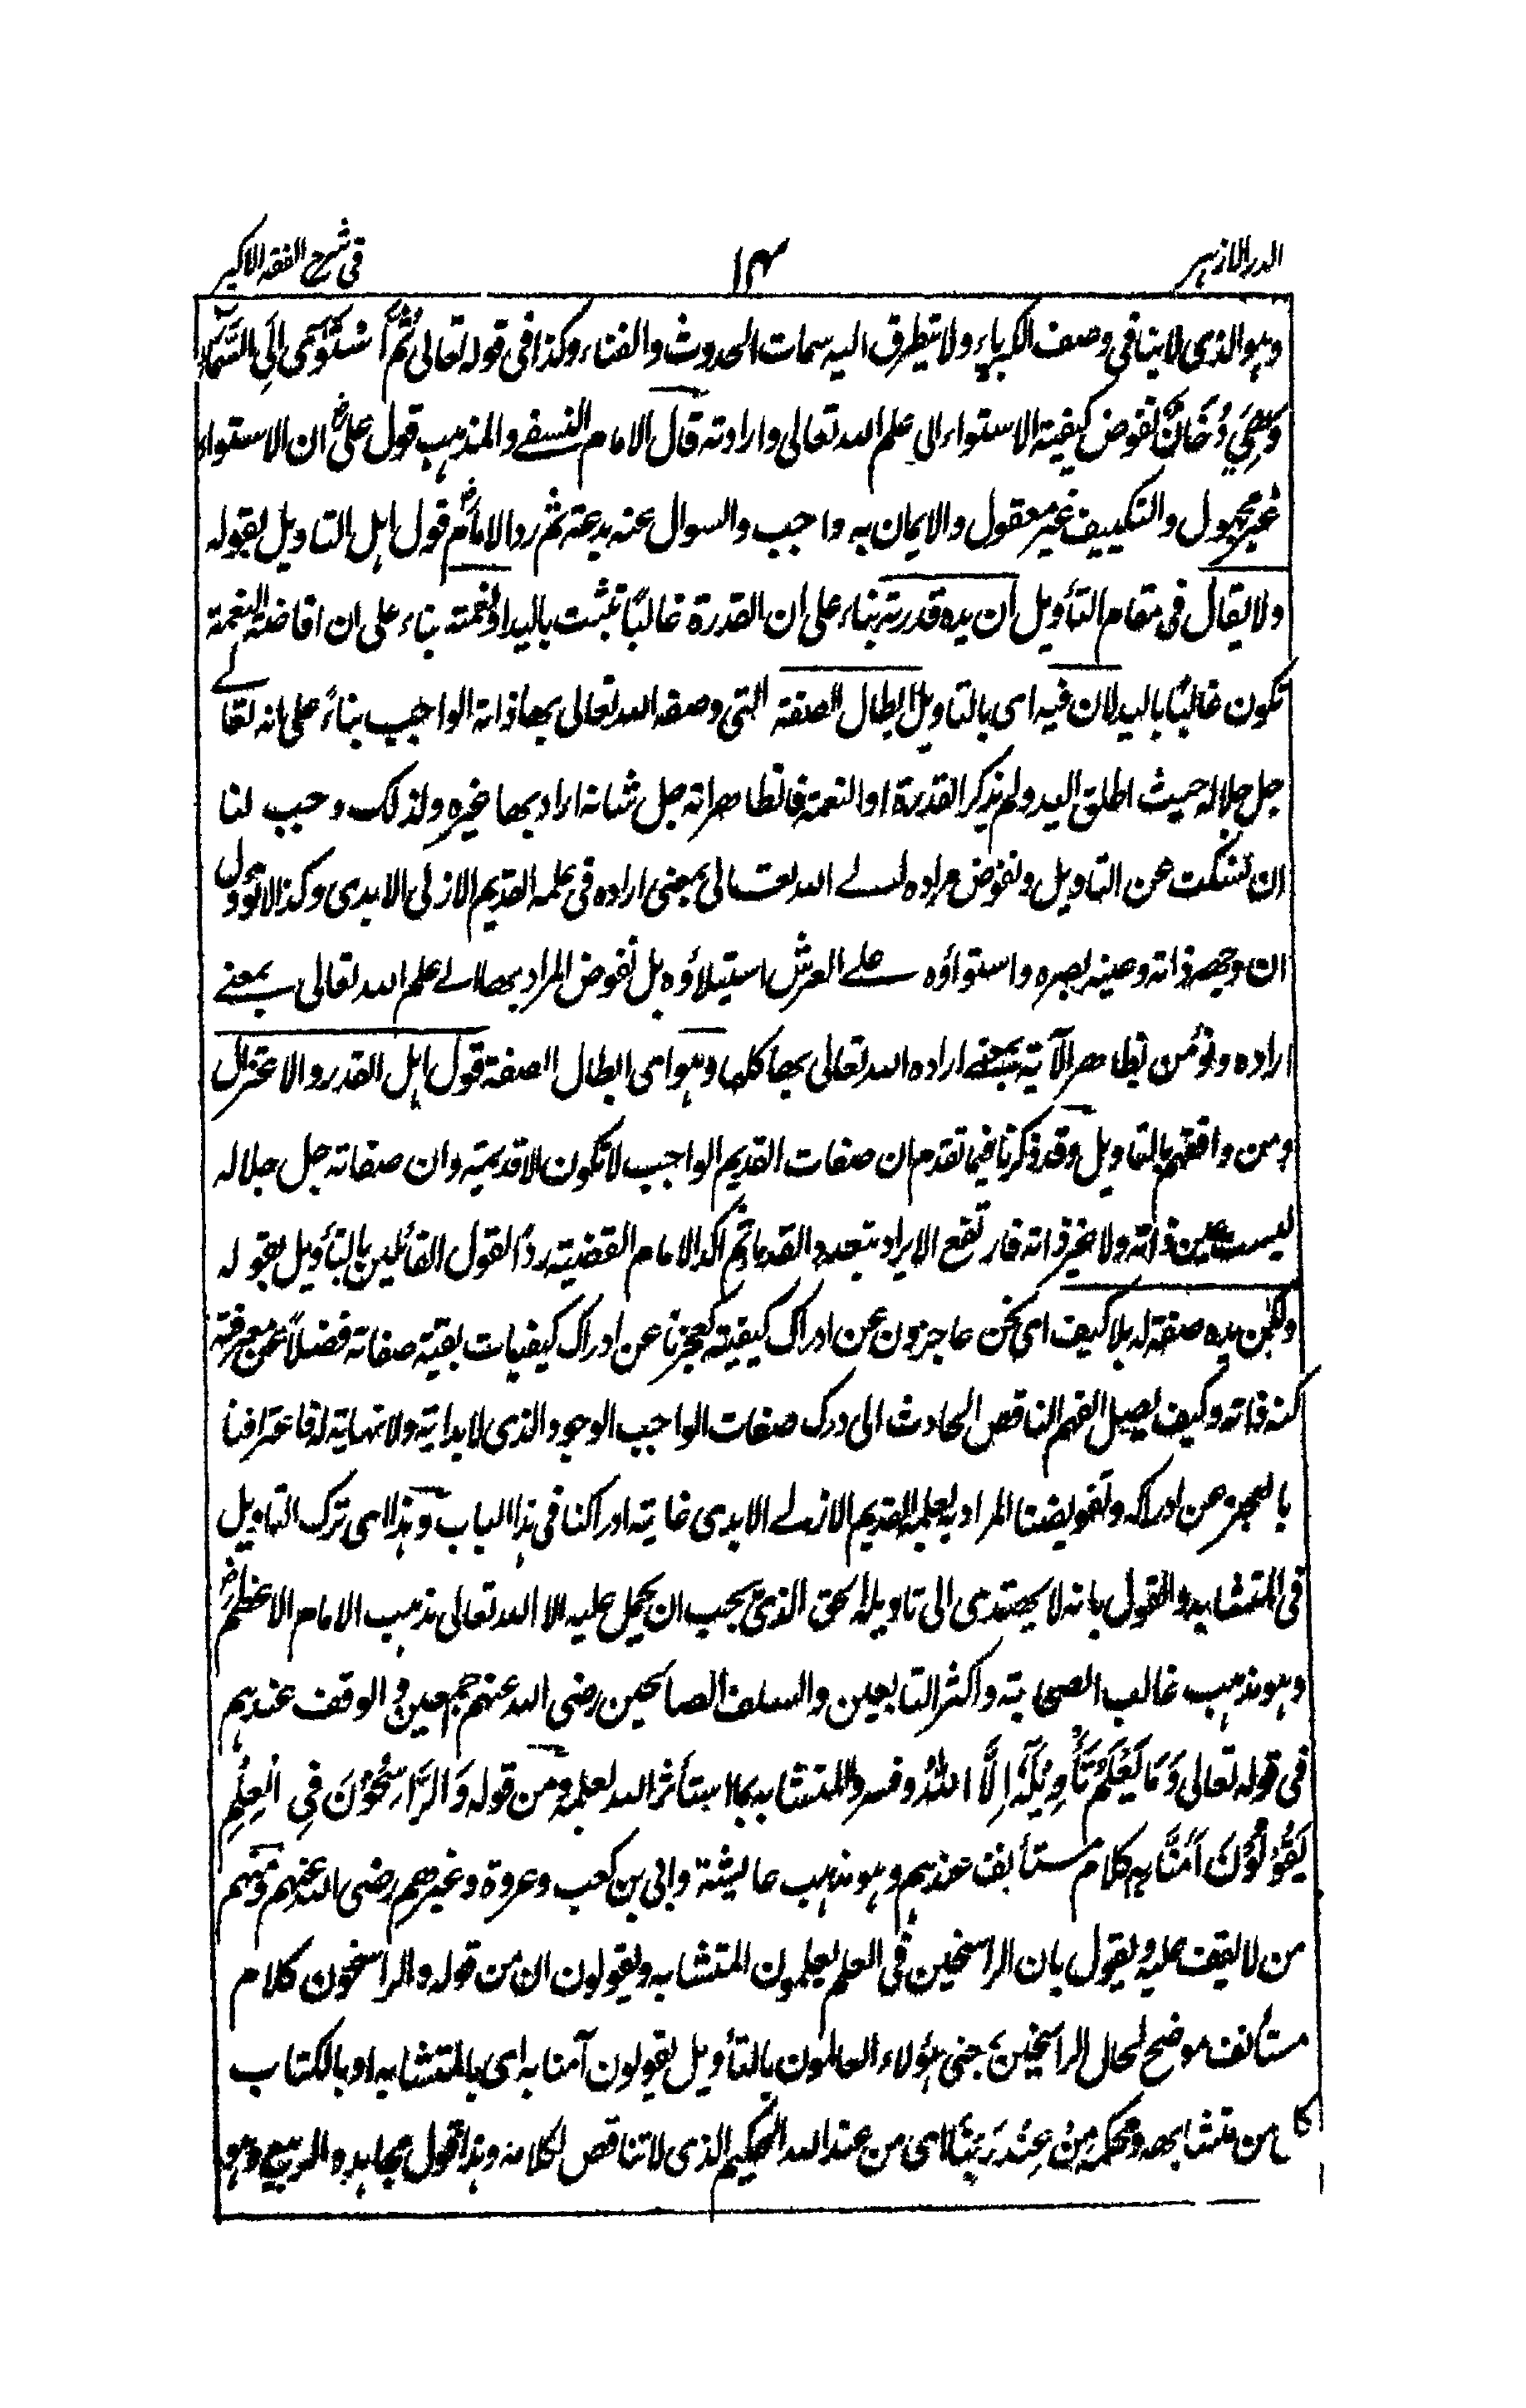 الدر الازہر ۱۴ فی شرح الفقہ الاکبر
وہو الذی لا ینافی وصف الکبریاء ولا یتطرق الیہ سمات الحدوث والفناء وکذا فی قولہ تعالی ثُمَّ اسْتَوٰی اِلَی السَّمَآءِ
وَہِیَ دُخَانٌ نفوض کیفیۃ الاستواء الی علم اللہ تعالی وارادتہ قال الامام النسفے والمذہب قول علیؓ ان الاستواء
غیر مجہول والتکییف غیر معقول والایمان بہ واجب والسوال عنہ بدعۃ ثم رد الامامؒ قول اہل التاویل بقولہ
ولا یقال فی مقام التأویل ان یدہ قدرتہ بناء علی ان القدرۃ غالبًا تثبت بالید او نعمتہ بناء علی ان افاضۃ النعمۃ
تکون غالبًا بالید لان فیہ ای بالتاویل ابطال الصفۃ التی وصف اللہ تعالی بھا ذاتہ الواجب بناءً علی انہ تعالے
جل جلالہ حیث اطلق الید ولم یذکر القدرۃ او النعمۃ فالظاھر انہ جل شانہ اراد بھا غیرہ ولذلک وجب لنا
ان نسکت عن التاویل ونفوض مرادہ الے اللہ تعالی بمعنی ارادہ فی علمہ القدیم الازلی الابدی وکذا لا نؤول
ان وجھہ ذاتہ وعینہ بصرہ واستواؤہ علے العرش استیلاؤہ بل نفوض المراد بھا الے علم اللہ تعالی بمعنے
ارادہ ونؤمن بظاھر الآیۃ بمعنے ارادہ اللہ تعالی بھا کلہا وہو ای ابطال الصفۃ قول اہل القدر والاعتزال
ومن وافقھم بالتاویل وقد ذکرنا فیما تقدم ان صفات القدیم الواجب لا تکون الا قدیمۃ وان صفاتہ جل جلالہ
لیست عین ذاتہ ولا غیر ذاتہ فارتفع الایراد بتعدد القدماء ثم اکد الامام القضیۃ ردًا لقول القائلین بالتأویل بقولہ
ولکن یدہ صفۃ لہ بلا کیف ای نحن عاجزون عن ادراک کیفیتہ کعجزنا عن ادراک کیفیات بقیۃ صفاتہ فضلًا عن معرفۃ
کنہ ذاتہ وکیف یصل الفہم الناقص الحادث الی درک صفات الواجب الوجود الذی لا بدایۃ ولا نہایۃ لہ فاعترافنا
بالعجز عن ادراکہ وتفویضنا المراد بہ لعلمہ القدیم الازلے الابدی غایۃ ادراکنا فی ہذا الباب وہذا ای ترک التاویل
فی المتشابہ والقول بانہ لا یھتدی الی تاویلہ الحق الذی یجب ان یحمل علیہ الا اللہ تعالی مذہب الامام الاعظمؓ
وہو مذہب غالب الصحابۃ واکثر التابعین والسلف الصالحین رضی اللہ عنہم اجمعین والوقف عندہم
فی قولہ تعالی وَمَا یَعْلَمُ تَأْوِیْلَہٗ اِلَّا اللّٰہُ وفسروا المتشابہ بما استأثر اللہ لعلمہ ومن قولہ وَالرَّاسِخُوْنَ فِی الْعِلْمِ
یَقُوْلُوْنَ اٰمَنَّا بِہٖ کلام مستأنف عندہم وہو مذہب عائشۃ وابی بن کعب وعروۃ وغیرھم رضی اللہ عنہم ومنہم
من لا یقف علیہ ویقول بان الراسخین فی العلم یعلمون المتشابہ ویقولون ان من قولہ والراسخون کلام
مستأنف موضح لحال الراسخین بمعنی ہؤلاء العالمون بالتأویل یقولون آمنا بہ ای بالمتشابہ او بالکتاب
کل من متشابھہ ومحکمہ مِنْ عِنْدِ رَبِّنَا ای من عند اللہ الحکیم الذی لا تناقض لکلامہ وہذا قول مجاہد والربیع وہو